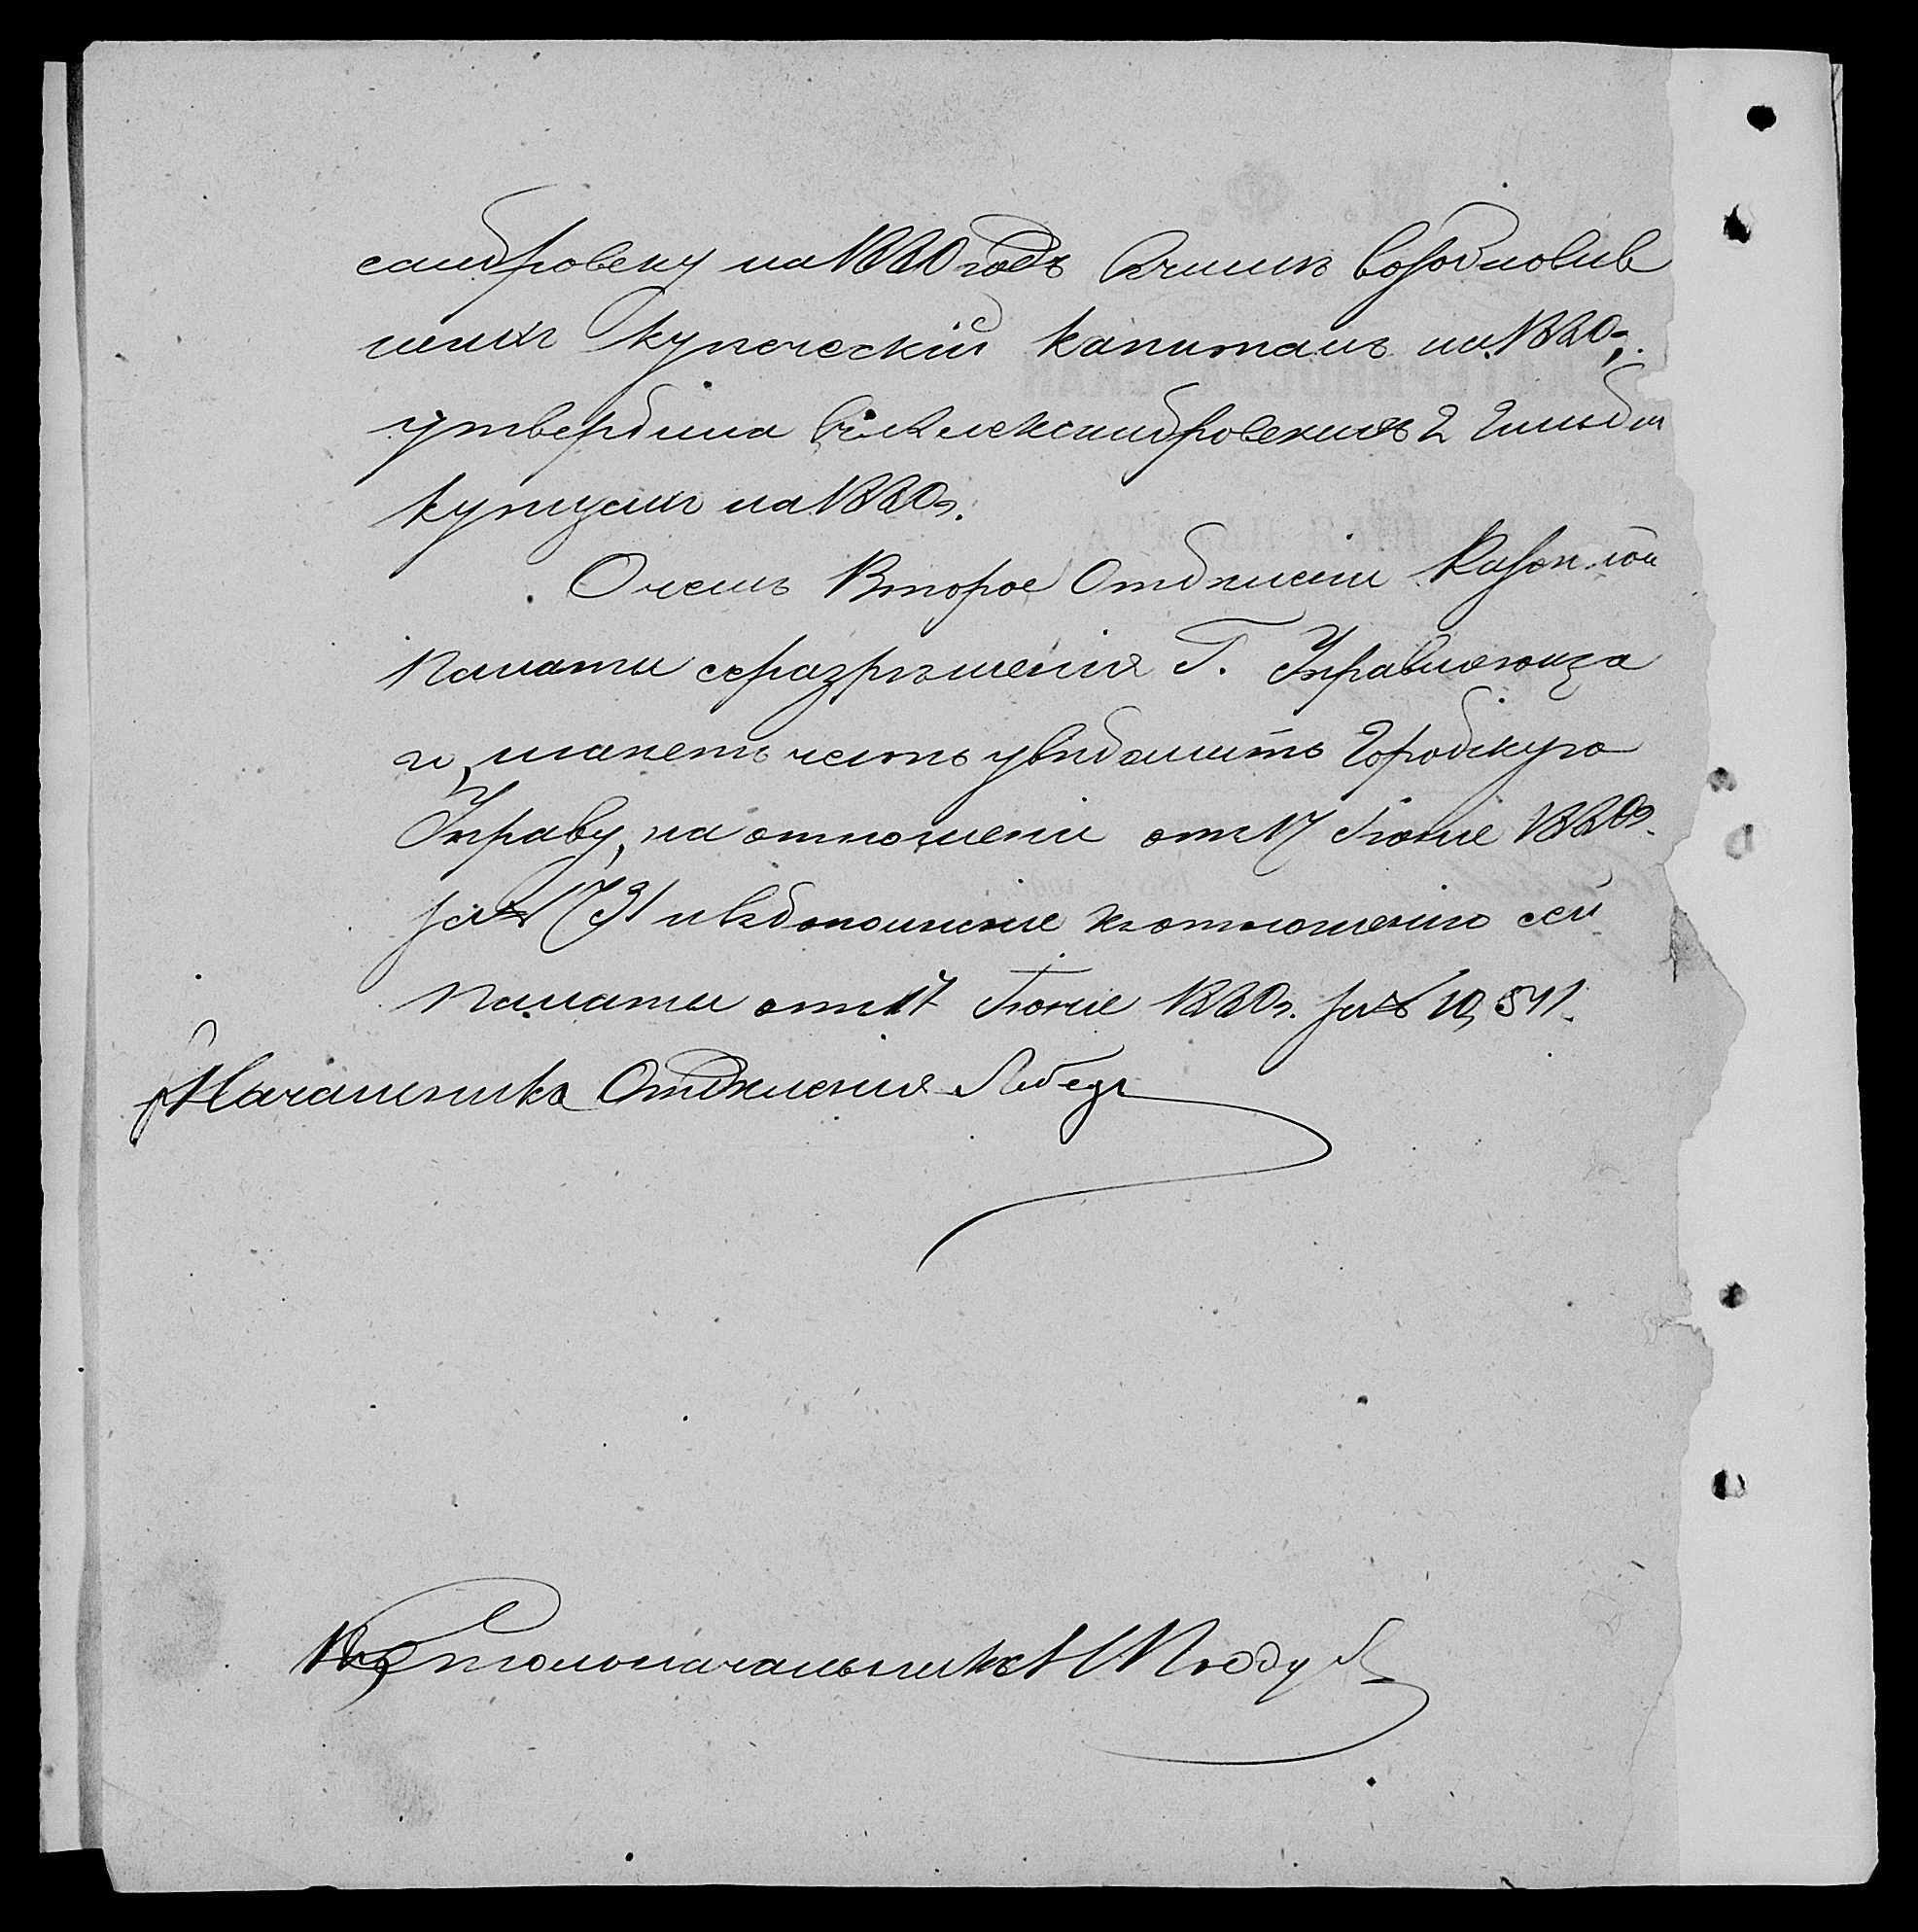 сандровску на 1880 годъ лицъ возобновив
шихъ купеческій капиталъ на 1880г.,
утвердила въ Александровскихъ 2 гильдіи
купцахъ на 1880г.
О чемъ Второе Отдѣленіе Казен. ной
Палаты съ разрѣшенія Г. Управляюща
го, имѣетъ честь увѣдомить Городскую
Управу, на отношеніе отъ 17 Іюня 1880г.
за № 731 и въ дополненіе къ отношенію сей
Палаты отъ 17 Іюня 1880г. за № 10,541.
Начальникъ Отдѣленія
Столоначальникъ